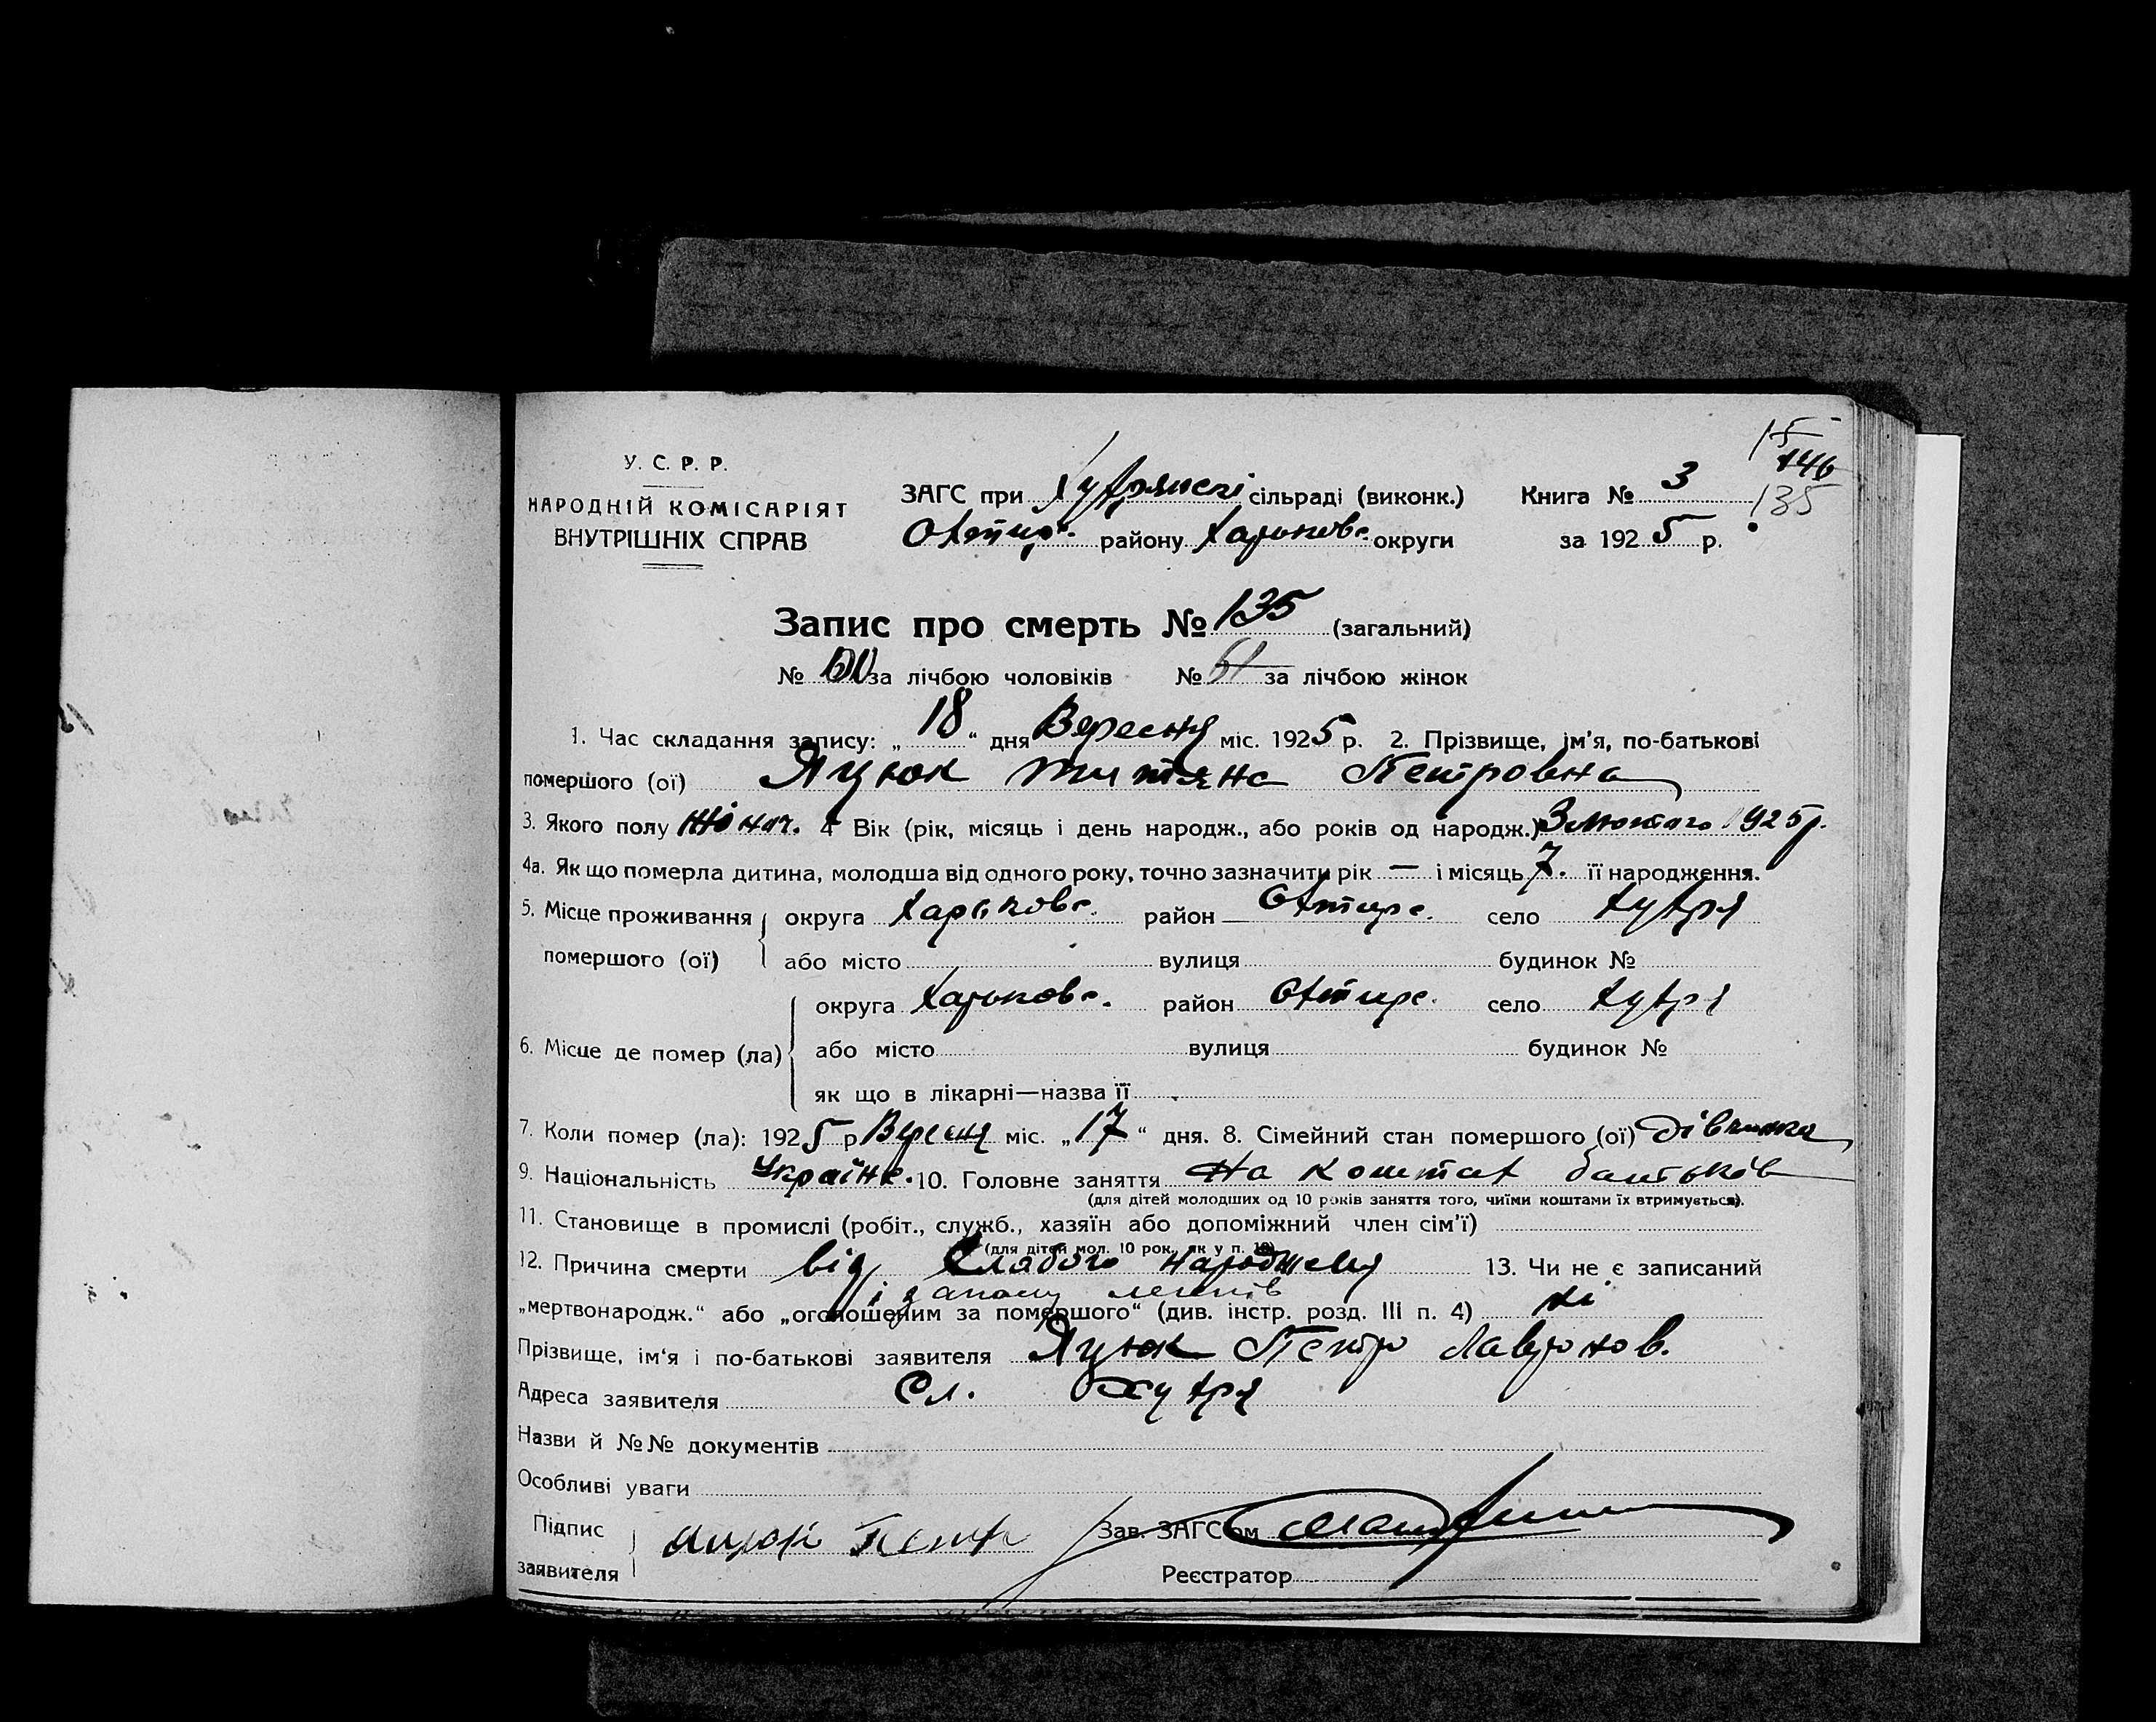 15
146
135
У. С. Р. Р.
НАРОДНІЙ КОМІСАРІЯТ
ВНУТРІШНІХ СПРАВ
ЗАГС при Хухрянскі сільраді (виконк.) Книга № 3
Охтир. району Харьковс. округи за 1925 р.
Запис про смерть № 135 (загальний)
№ за лічбою чоловіків № 61 за лічбою жінок
1. Час складання запису: „18“ дня Вересня міс. 1925 р. 2. Прізвище, ім’я, по-батькові
помершого (ої) Яцюк Титяна Петровна
3. Якого полу Жіноч. 4 Вік (рік, місяць і день народж., або років од народж.) 3 лютаго 1925 р.
4а. Як що померла дитина, молодша від одного року, точно зазначити рік — і місяць 7. її народження.
5. Місце проживання округа Харьковс. район Охтирс. село Хухря
помершого (ої) або місто вулиця будинок №
округа Харьковс. район Охтирс. село Хухря
6. Місце де помер (ла) або місто вулиця будинок №
як що в лікарні—назва її
7. Коли помер (ла): 1925 р Вересня міс. „17“ дня. 8. Сімейний стан помершого (ої) дівчинка
9. Національність Україне. 10. Головне заняття На коштах батьків
(для дітей молодших од 10 років заняття того, чиїми коштами їх втримується).
11. Становище в промислі (робіт., служб., хазяїн або допоміжний член сім’ї)
(для дітей мол. 10 рок., як у п. 10)
12. Причина смерти від Слабого народженя 13. Чи не є записаний
і запалу легків
„мертвонародж.“ або „оголошеним за помершого“ (див. інстр. розд. III п. 4) ні
Прізвище, ім‘я і по-батькові заявителя Яцюк Петро Лавронов.
Адреса заявителя Сл. Хухря
Назви й №№ документів
Особливі уваги
Підпис
заявителя Яцюк Петр Зав. ЗАГС’ом
Реєстратор